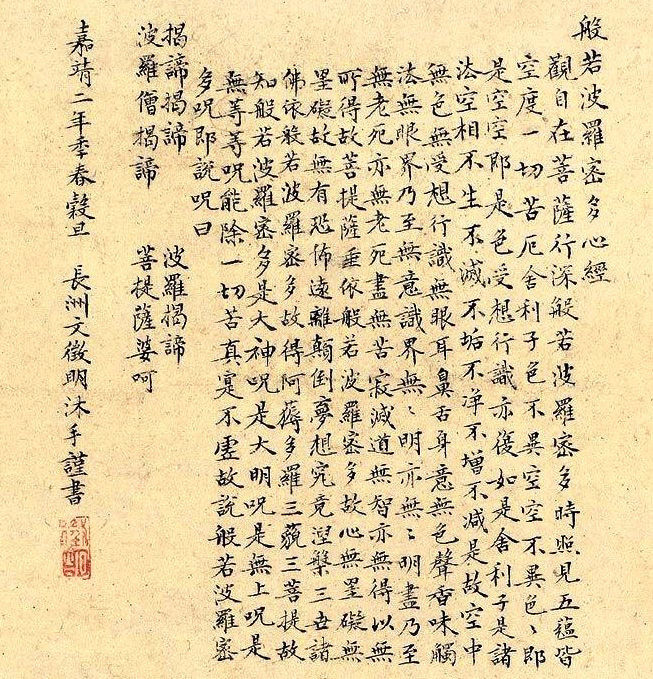 般若波羅密多心經
觀自在菩薩行深般若波羅密多時照見五蘊皆
空度一切苦厄舍利子色不異空空不異色〻即
是空空即是色受想行識亦復如是舍利子是諸
法空相不生不滅不垢不淨不增不減是故空中
無色無受想行識無眼耳鼻舌身意無色聲香味觸
法無眼界乃至無意識界無〻明亦無〻明盡乃至
無老死亦無老死盡無苦寂滅道無智亦無得以無
所得故菩提薩垂依般若波羅密多故心無罣礙無
罣礙故無有恐怖遠離顛倒夢想究竟涅槃三世諸
佛依般若波羅密多故得阿耨多羅三藐三菩提故
知般若波羅密多是大神咒是大明咒是無上咒是
無等等咒能除一切苦真寔不虛故說般若波羅密
多咒即說咒曰
揭諦揭諦 波羅揭諦
波羅僧揭諦 菩提薩婆呵
嘉靖二年季春穀旦 長洲文徵明沐手謹書